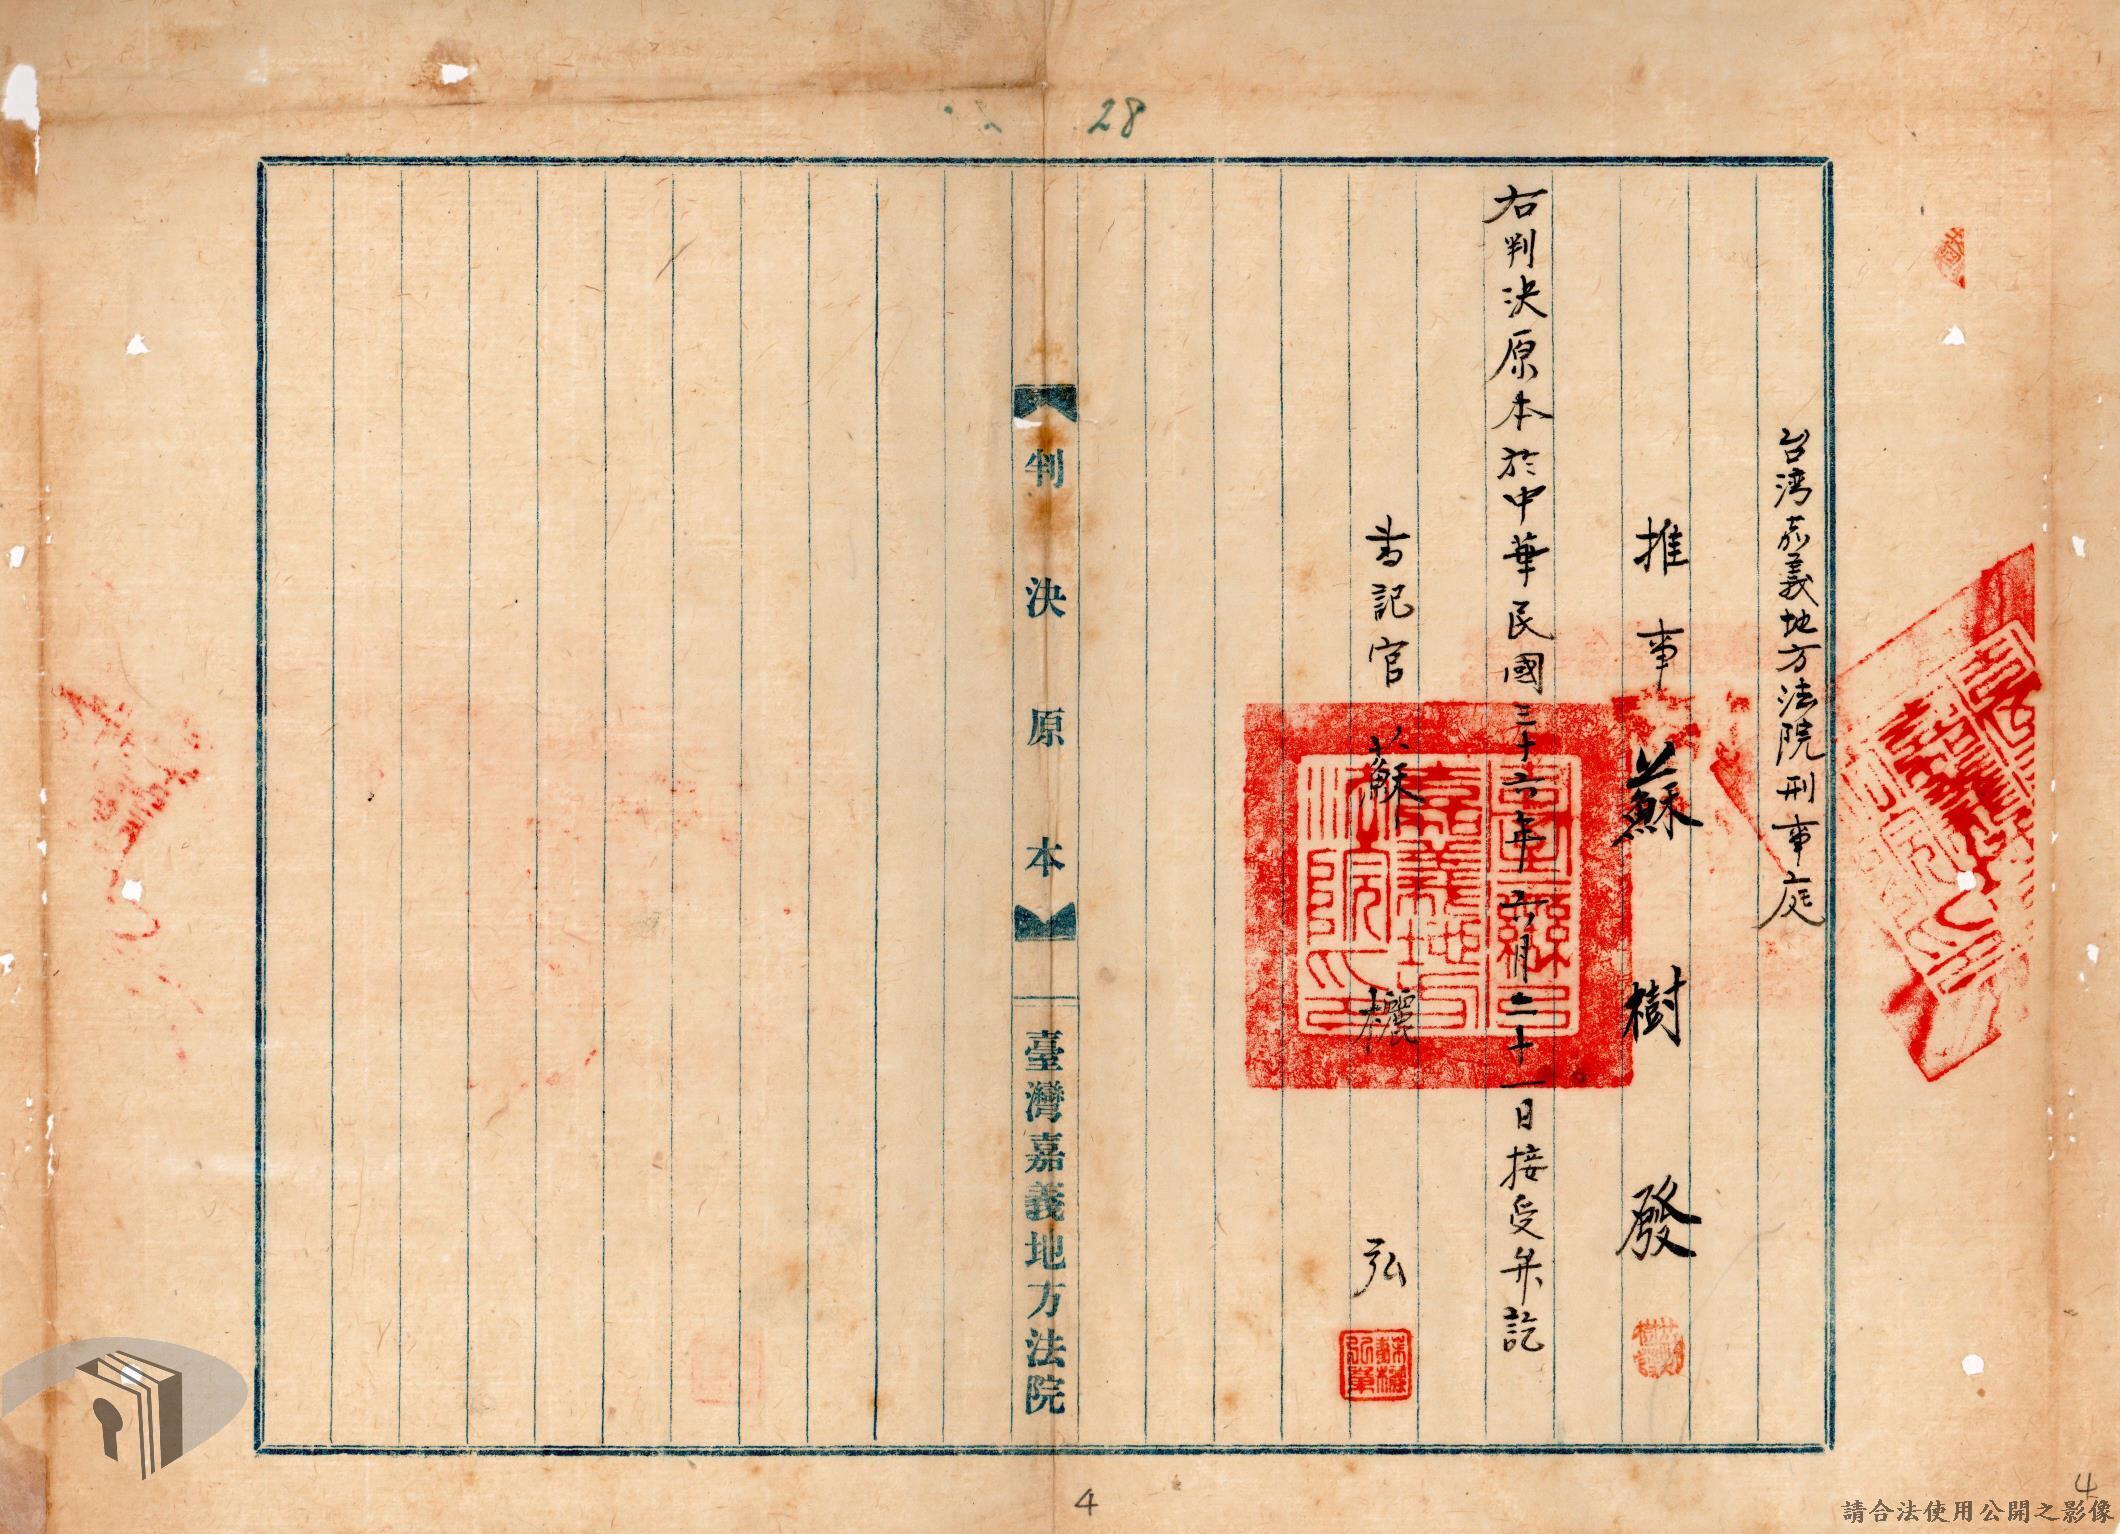 28
台湾嘉義地方法院刑事庭
推事 蘇樹發
右判決原本於中華民國三十六年六月二十一日接受弁訖
書記官 蘇欐弘
臺灣嘉義地方法院印
判決原本
臺灣嘉義地方法院
4
4
請合法使用公開之影像